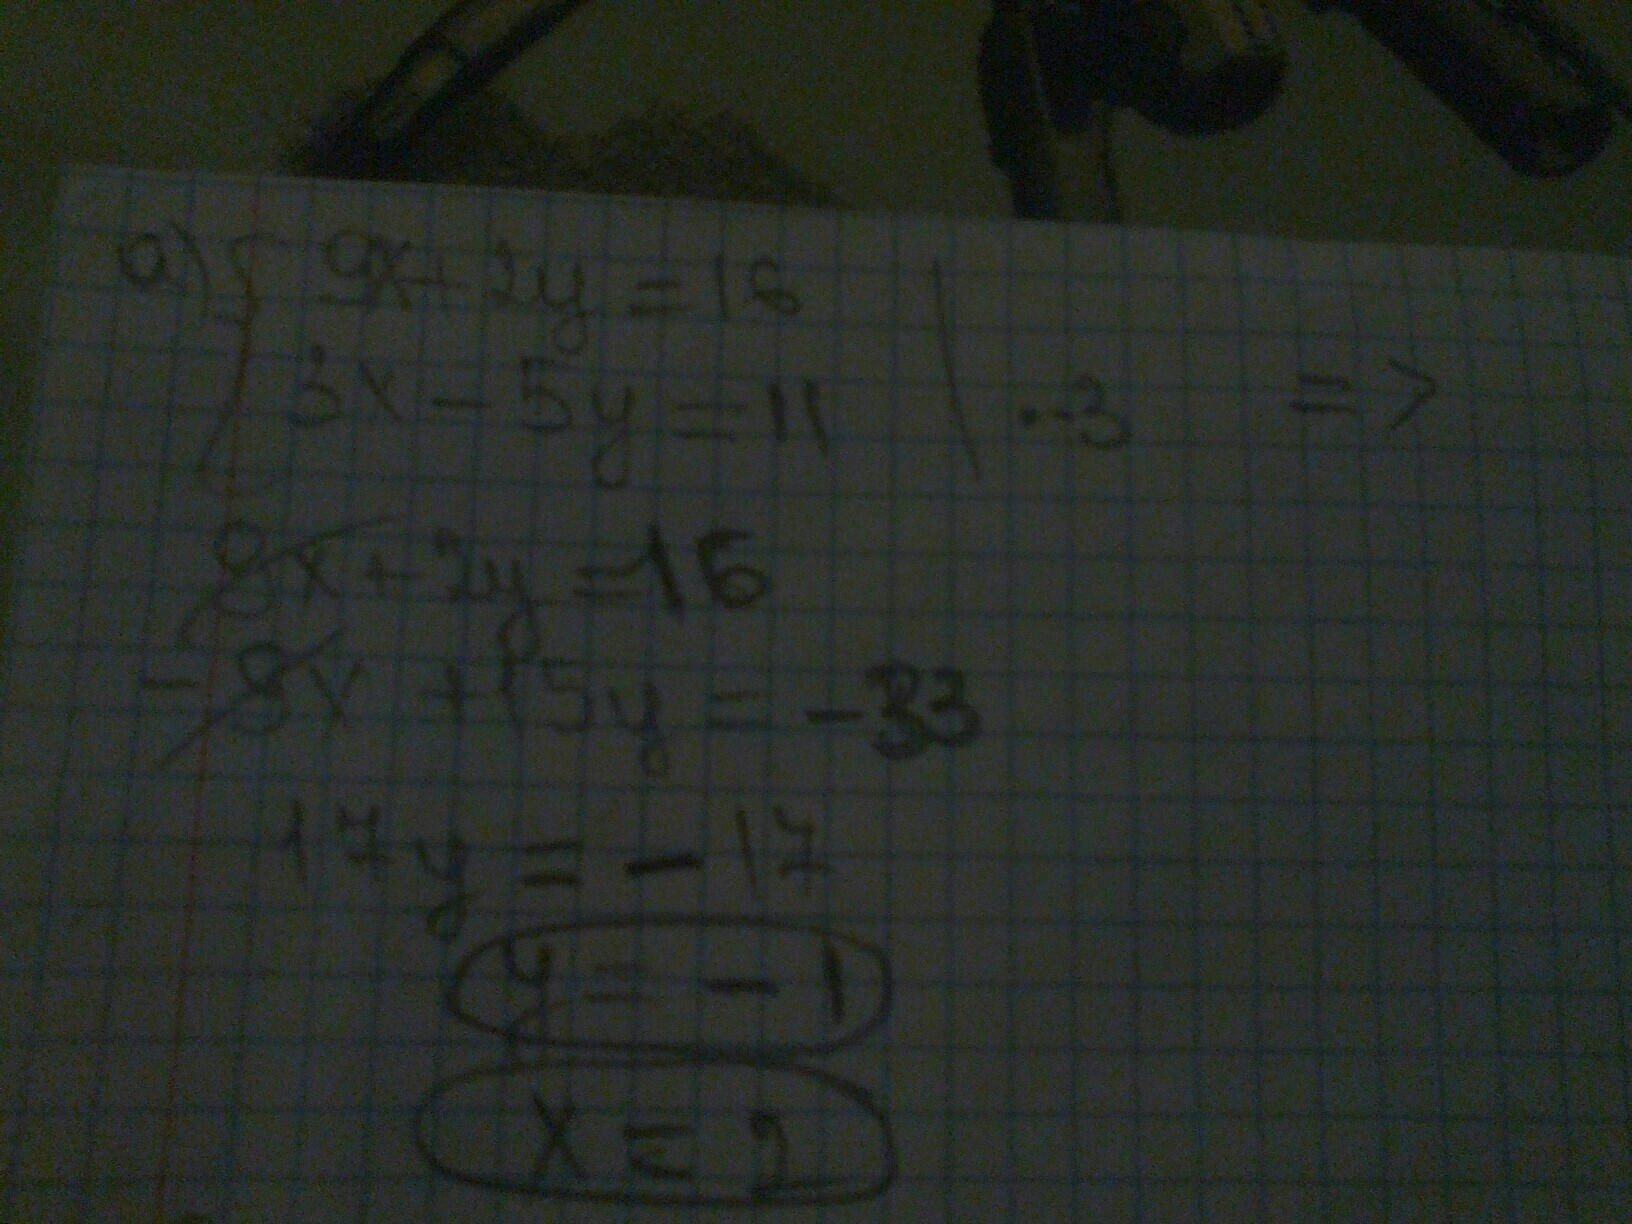 a) { 9x + 2y = 16
3x - 5y = 11 | · -3 =>
9x + 2y = 16
- 9x + 15y = -33
17y = -17
y = -1
x = 2